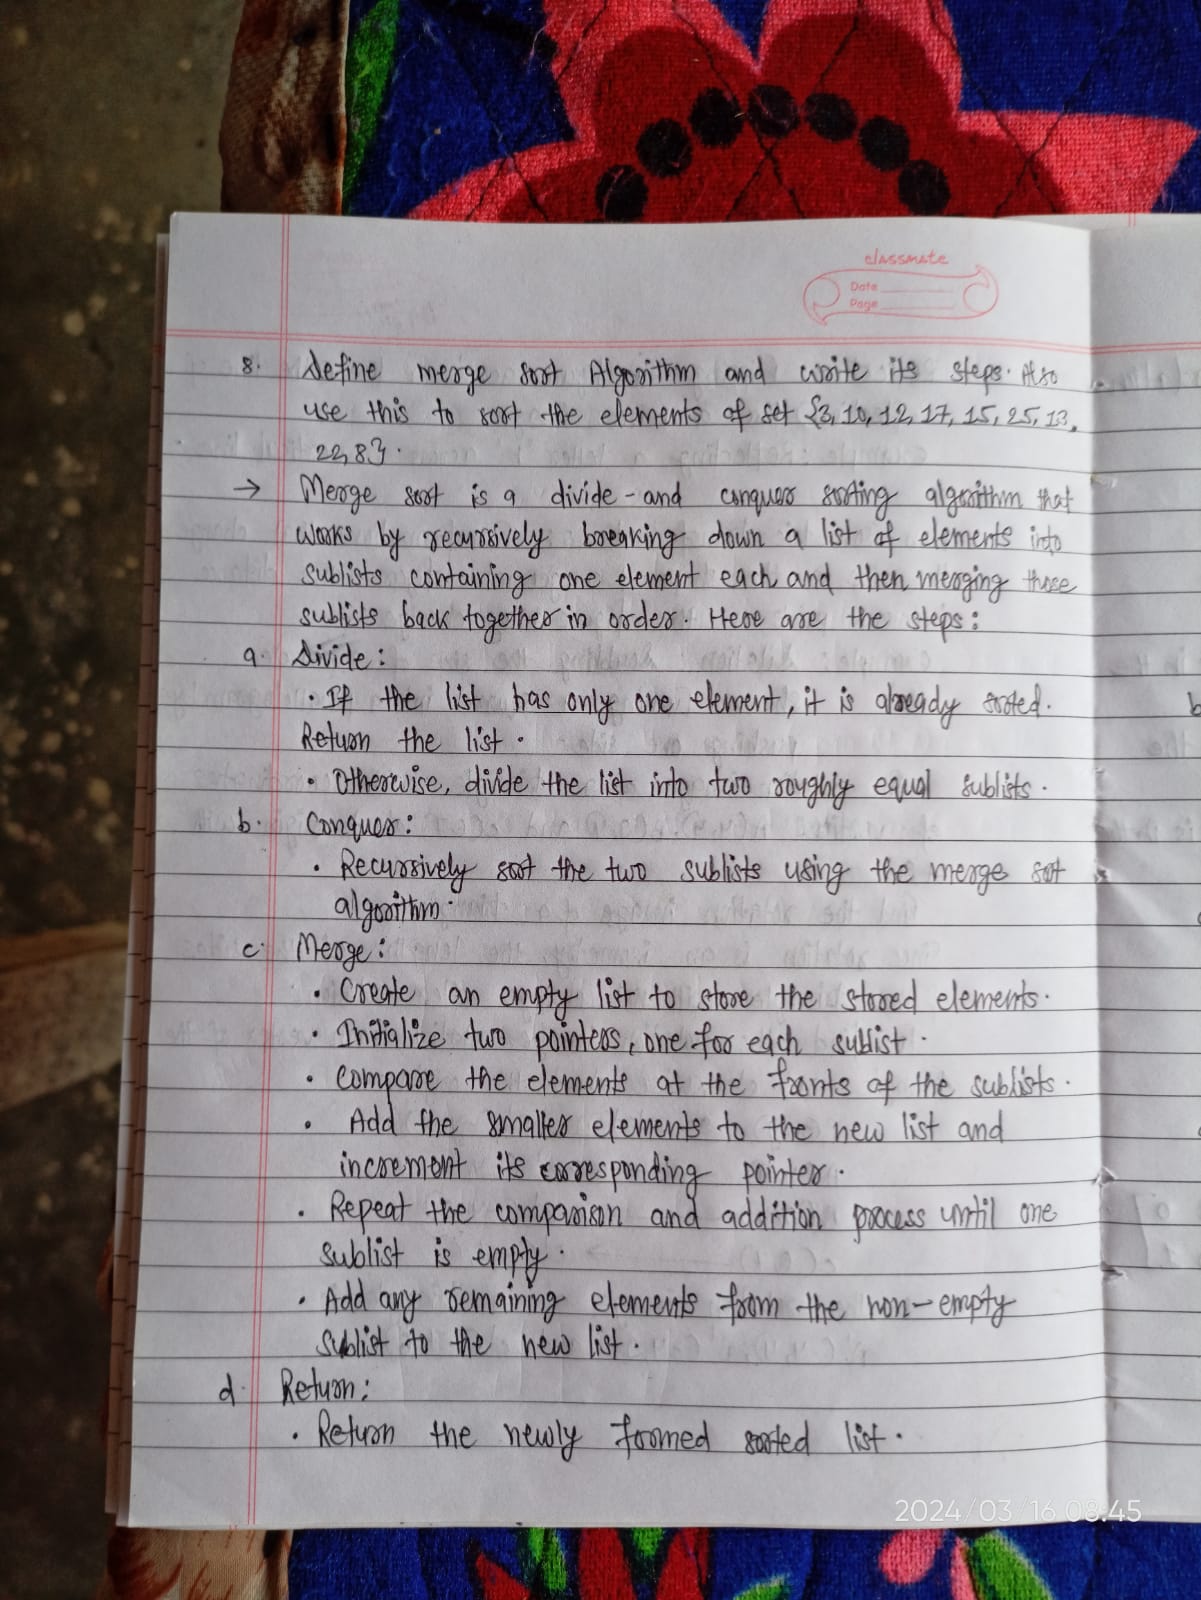 classmate
Date
Page
8. Define merge sort Algorithm and write its steps. Also
use this to sort the elements of set {3, 10, 12, 17, 15, 25, 13,
22, 8}.
→ Merge sort is a divide-and conquer sorting algorithm that
works by recursively breaking down a list of elements into
sublists containing one element each and then merging those
sublists back together in order. Here are the steps:
a. Divide:
• If the list has only one element, it is already sorted.
Return the list.
• Otherwise, divide the list into two roughly equal sublists.
b. Conquer:
• Recursively sort the two sublists using the merge sort
algorithm.
c. Merge:
• Create an empty list to store the stored elements.
• Initialize two pointers, one for each sublist.
• Compare the elements at the fronts of the sublists.
• Add the smaller elements to the new list and
increment its corresponding pointer.
• Repeat the comparison and addition process until one
sublist is empty.
• Add any remaining elements from the non-empty
sublist to the new list.
d. Return:
• Return the newly formed sorted list.
2024/03/16 08:45